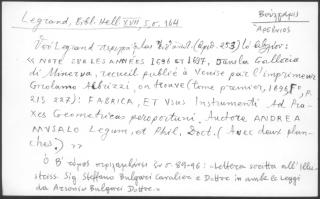 Legrand, Bibl. Hell. XVIII, 5, σ. 164
Βούλγαρις
Ἀρσένιος
Legrand
(ἀριθ. 253) τὸ ἑξῆς:
« NOTE SUR LES ANNÉES 1696 ET 1697, Dans la Galleria
di Minerva, recueil publié à Venise par l'imprimeur
Girolamo Albrizzi, on trouve (tome premier, 1696, p.
215, 227): FABRICA, ET Usus Instrumenti Ad
Praxes Geometricas peropportuni, Auctore ANDREA
MVSALO Legum, et Phil. Doct. (Avec deux plan-
ches.) »
Ὁ Β' τόμος περιλαμβάνει ἐν σ. 89-96: «Lettera scritta all' Illu-
striss. Sig. Stefano Bulgari Cavalier e Dottor in ambe le Leggi
da Arsenio Bulgari Dottor. »